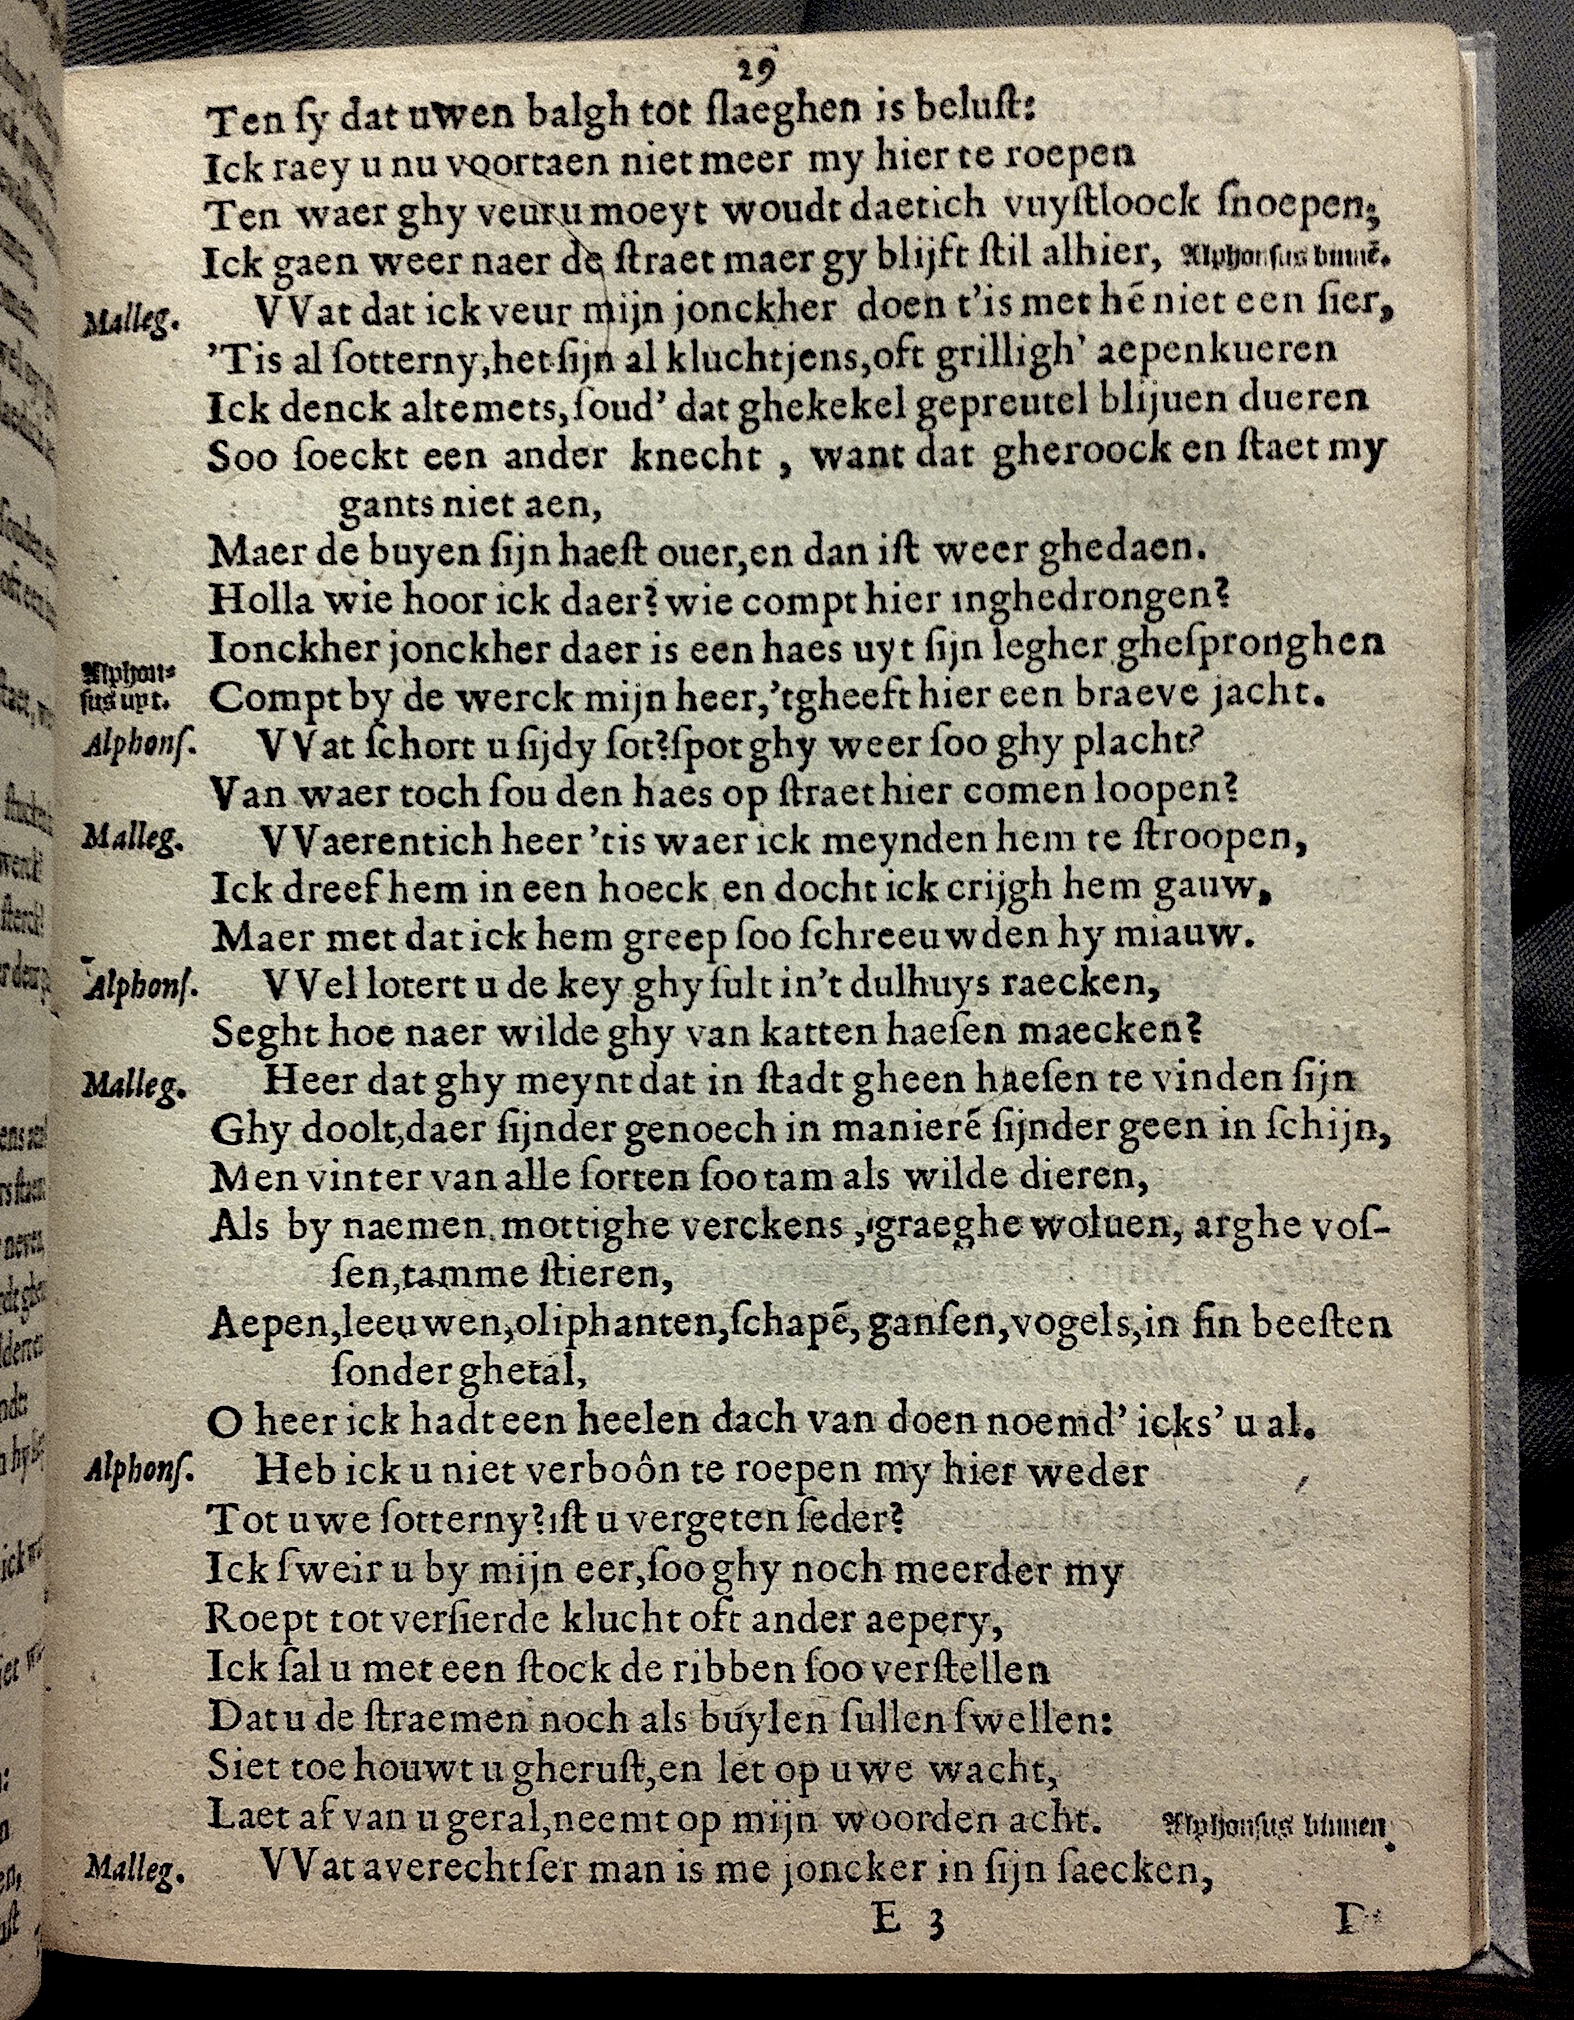 29
Ten ſy dat uwen balgh tot ſlaeghen is beluſt:
Ick raey u nu voortaen niet meer my hier te roepen
Ten waer ghy veur u moeyt woudt daetich vuyſtloock ſnoepen;
Ick gaen weer naer de ſtraet maer gy blijft ſtil alhier, Alphonſus binnē.
Malleg. VVat dat ick veur mijn jonckher doen t'is met hē niet een ſier,
'Tis al ſotterny, het ſijn al kluchtjens, oft grilligh' aepenkueren
Ick denck altemets, ſoud' dat ghekekel gepreutel blijuen dueren
Soo ſoeckt een ander knecht , want dat gheroock en ſtaet my
gants niet aen,
Maer de buyen ſijn haeſt ouer, en dan iſt weer ghedaen.
Holla wie hoor ick daer? wie compt hier inghedrongen?
Ionckher jonckher daer is een haes uyt ſijn legher gheſpronghen
Alphon-
ſus uyt. Compt by de werck mijn heer, 'tgheeft hier een braeve jacht.
Alphonſ. VVat ſchort u ſijdy ſot? ſpot ghy weer ſoo ghy placht?
Van waer toch ſou den haes op ſtraet hier comen loopen?
Malleg. VVaerentich heer 'tis waer ick meynden hem te ſtroopen,
Ick dreef hem in een hoeck en docht ick crijgh hem gauw,
Maer met dat ick hem greep ſoo ſchreeuwden hy miauw.
Alphonſ. VVel lotert u de key ghy ſult in't dulhuys raecken,
Seght hoe naer wilde ghy van katten haeſen maecken?
Malleg. Heer dat ghy meynt dat in ſtadt gheen haeſen te vinden ſijn
Ghy doolt, daer ſijnder genoech in manierē ſijnder geen in ſchijn,
Men vinter van alle ſorten ſoo tam als wilde dieren,
Als by naemen mottighe verckens , graeghe woluen, arghe voſ-
ſen, tamme ſtieren,
Aepen, leeuwen, oliphanten, ſchapē, ganſen, vogels, in fin beeſten
ſonder ghetal,
O heer ick hadt een heelen dach van doen noemd' icks' u al.
Alphonſ. Heb ick u niet verboôn te roepen my hier weder
Tot uwe ſotterny? iſt u vergeten ſeder?
Ick ſweir u by mijn eer, ſoo ghy noch meerder my
Roept tot verſierde klucht oft ander aepery,
Ick ſal u met een ſtock de ribben ſoo verſtellen
Dat u de ſtraemen noch als buylen ſullen ſwellen:
Siet toe houwt u gheruſt, en let op uwe wacht,
Laet af van u geral, neemt op mijn woorden acht. Alphonſus binnen.
Malleg. VVat averechtſer man is me joncker in ſijn ſaecken,
E 3